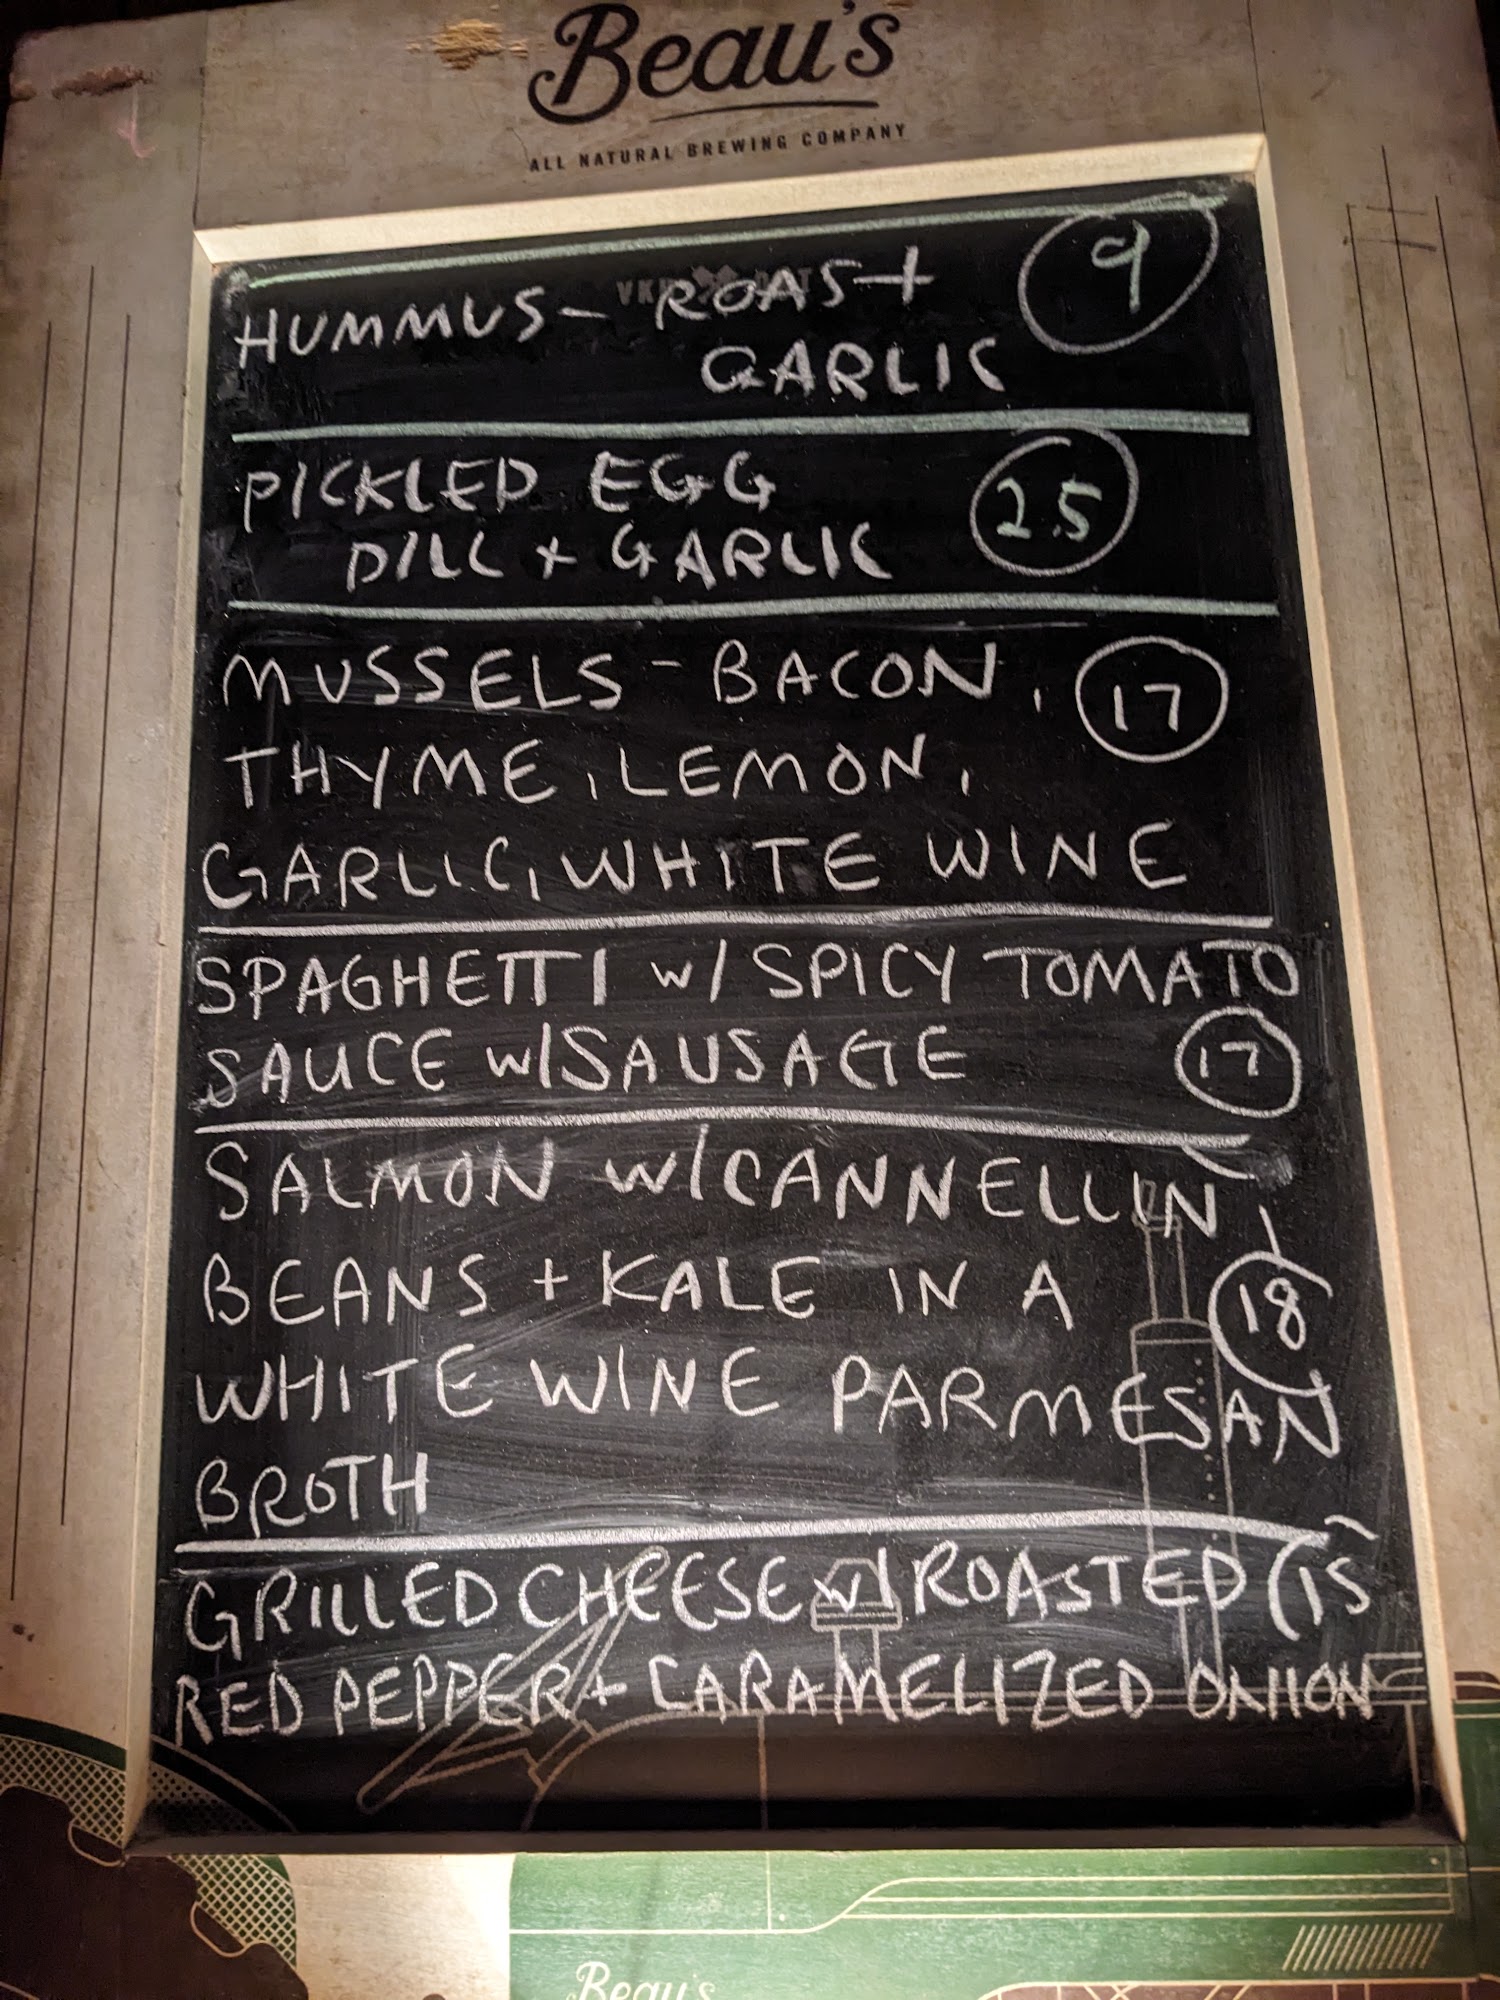 Beau's
ALL NATURAL BREWING COMPANY
HUMMUS - ROAST 9
GARLIC
PICKLED EGG
DILL + GARLIC 2.5
MUSSELS - BACON, 17
THYME, LEMON,
GARLIC, WHITE WINE
SPAGHETTI w/ SPICY TOMATO
SAUCE w/SAUSAGE 17
SALMON w/CANNELLINI
BEANS + KALE IN A 18
WHITE WINE PARMESAN
BROTH
GRILLED CHEESE w/ ROASTED 15
RED PEPPER + CARAMELIZED ONION
Beau's